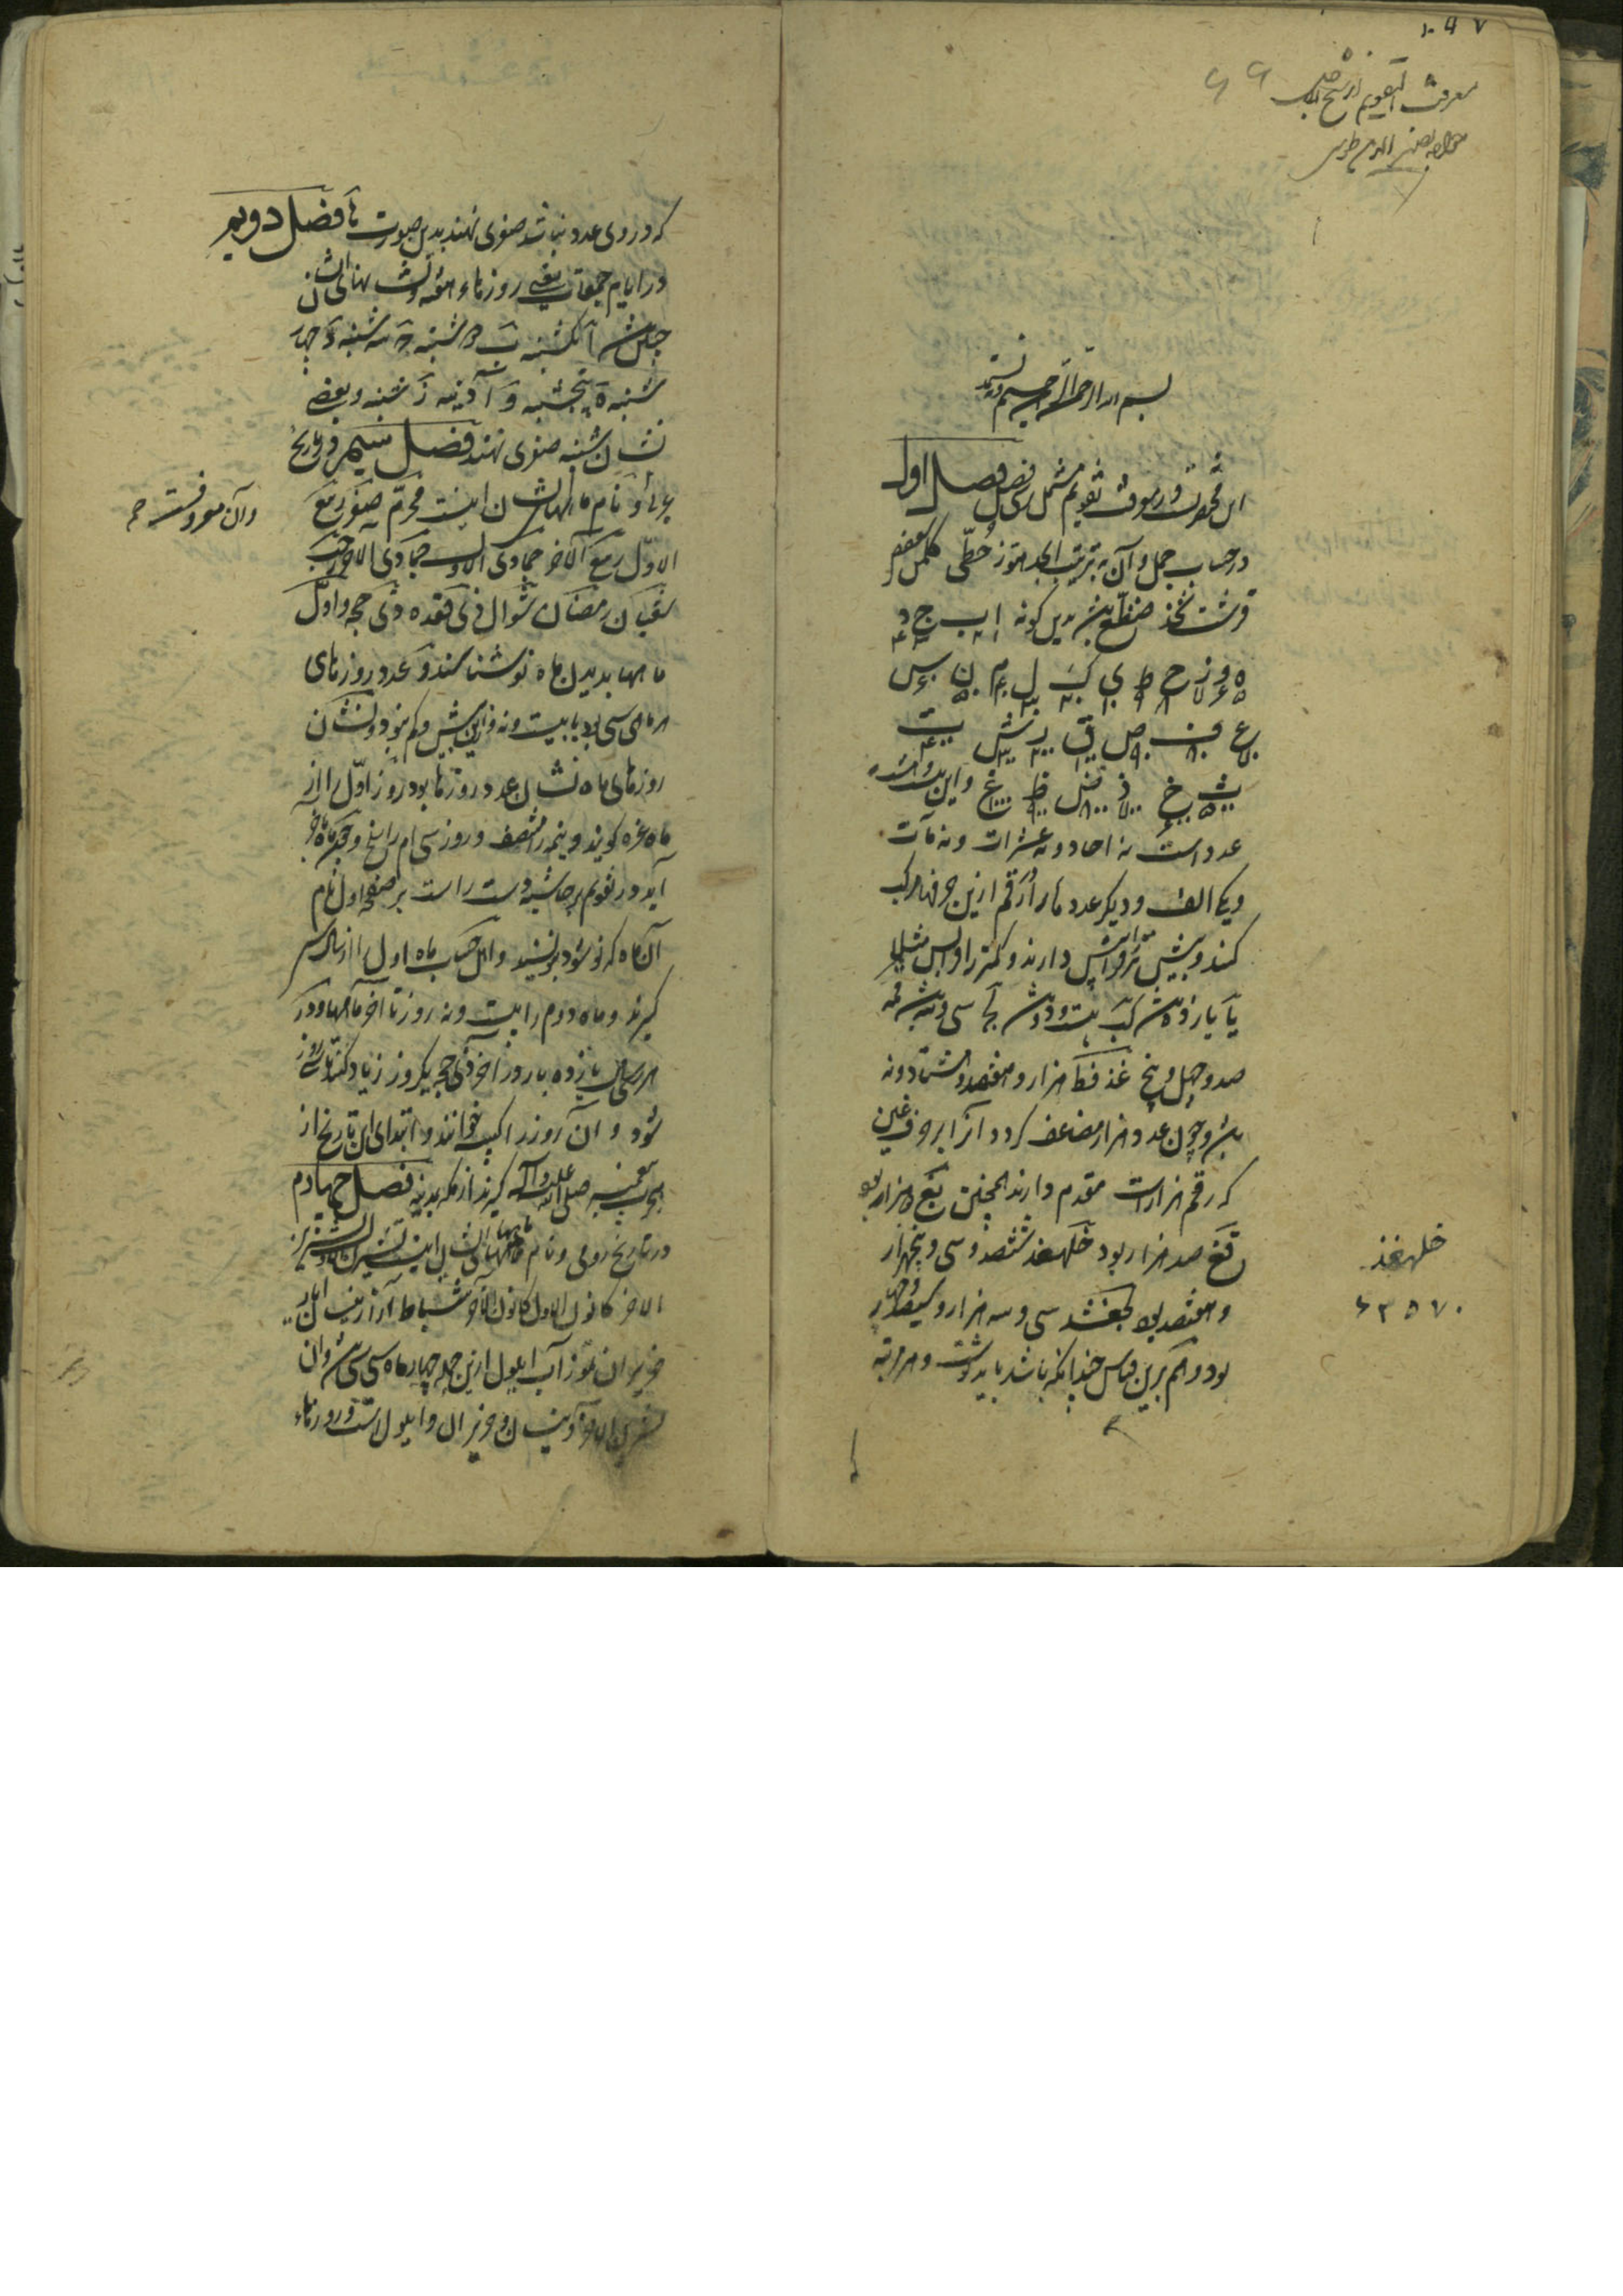 ۱۰۹۷
معرفت التقویم از شیخ
خواجه نصیر الدین طوسی
۶۶
بسم الله الرحمن الرحیم و به نستعین
این مختصریست در معرفت تقویم مشتمل بر سی فصل فصل اول
در حساب جمل و آن بترتیب ابجد هوز حطی کلمن سعفص
قرشت ثخذ ضظغ باشد بدین گونه ا ب ج د
ه و ز ح ط ی ک ل م ن س
ع ف ص ق ر ش ت
ث خ ذ ض ظ غ و این
عدد است نه احاد و نه عشرات و نه مآت
و یک الف و دیگر عدد ها را رقم ازین حرفها مرکب
کنند و بیش تر را پیش دارند و کمتر را و اپس مثلا
یا یازده باشد کب بیست و دو باشد لج سی و سه باشد قمه
صد و چهل و پنج غذ فط هزار و هفتصد و هشتاد و نه
باشد و چون عدد هزار مضاعف گردد آنرا بر حرف غین
که رقم هزار است مقدم دارند همچنین بغ دو هزار بود
قغ صد هزار بود خلهغذ ششصد و سی و پنجهزار
و هفتصد بود لجغشد سی و سه هزار و سیصد و چهار
بود و هم برین قیاس چندانکه باشد باید دانست و هر مرتبه
خلهغذ
۶۳۵۷۰
که در وی عدد نباشد صفری نهند بدین صورت ه فصل دویم
در ایام جمعات یعنی روزهاء هفته و نشانهای ایشان
چنین باشد ا یکشنبه ب دوشنبه ج سه شنبه د چهار
شنبه ه پنجشنبه و آدینه ز شنبه و بعضی
نشان شنبه صفری نهند فصل سیم در تاریخ
عربی و نام ماههای ایشان اینست محرم صفر ربیع
الاول ربیع الاخر جمادی الاول جمادی الاخر رجب
شعبان رمضان شوال ذی قعده ذی حجه و اول
ماهها بدیدن ماه نو شناسند و عدد روزهای
هر ماهی سی بود یا بیست و نه و ازین بیش و کم نبود و نشان
روزهای ماه نشان عدد روزها بود و روز اول را از
ماه غره گویند و نیمه را منتصف و روز سی ام را سلخ و چون ماه نو
آید در تقویم بر حاشیه دست راست بر صفحه اول نام
آن ماه که نو شود بنویسند و اهل حساب ماه اول را از سال سی
گیرند و ماه دوم را بیست و نه روز تا آخر ماهها و در
هر سی سال یازده بار روز آخر ذی حجه یکروز زیاد کنند تا سی روز
شود و آن روز را کبیسه خوانند و ابتدای این تاریخ از
هجرت پیغمبر صلی الله علیه و آله گیرند از مکه بمدینه فصل چهارم
در تاریخ رومی و نام ماههای ایشان اینست تشرین الاول تشرین
الاخر کانون الاول کانون الاخر شباط آذار نیسان ایار
حزیران تموز آب ایلول ازین جمله چهار ماه سی سی باشد و آن
تشرین الاخر و نیسان و حزیران و ایلول است و روزهاء
و آن معروفست